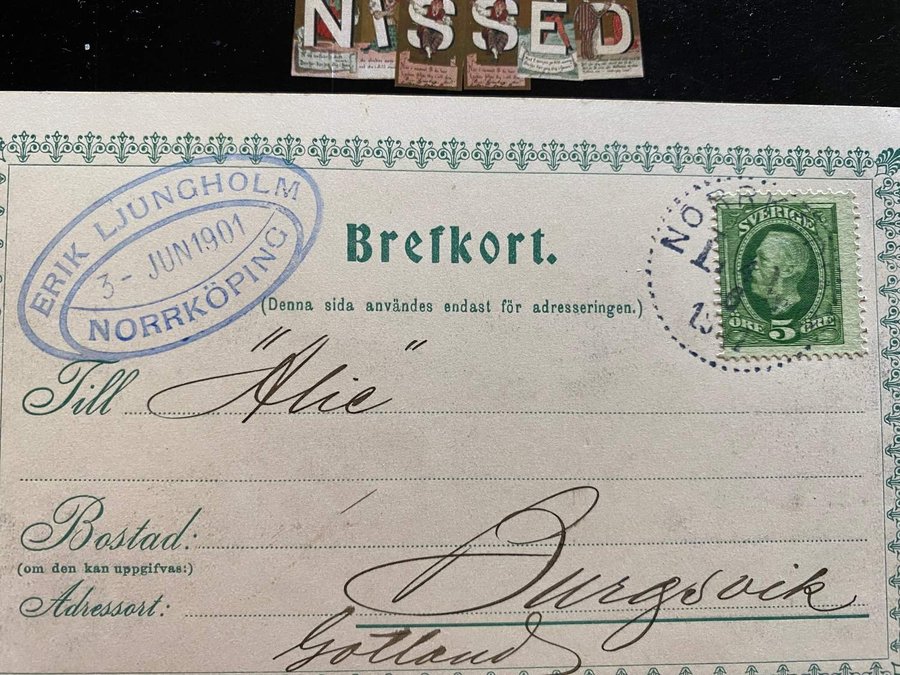 NISSED
ERIK LJUNGHOLM
3- JUN 1901
NORRKÖPING
Brefkort.
(Denna sida användes endast för adresseringen.)
SVERIGE
ÖRE 5 ÖRE
Till "Alie"
Bostad:
(om den kan uppgifvas:)
Adressort: Burgsvik
Gotland